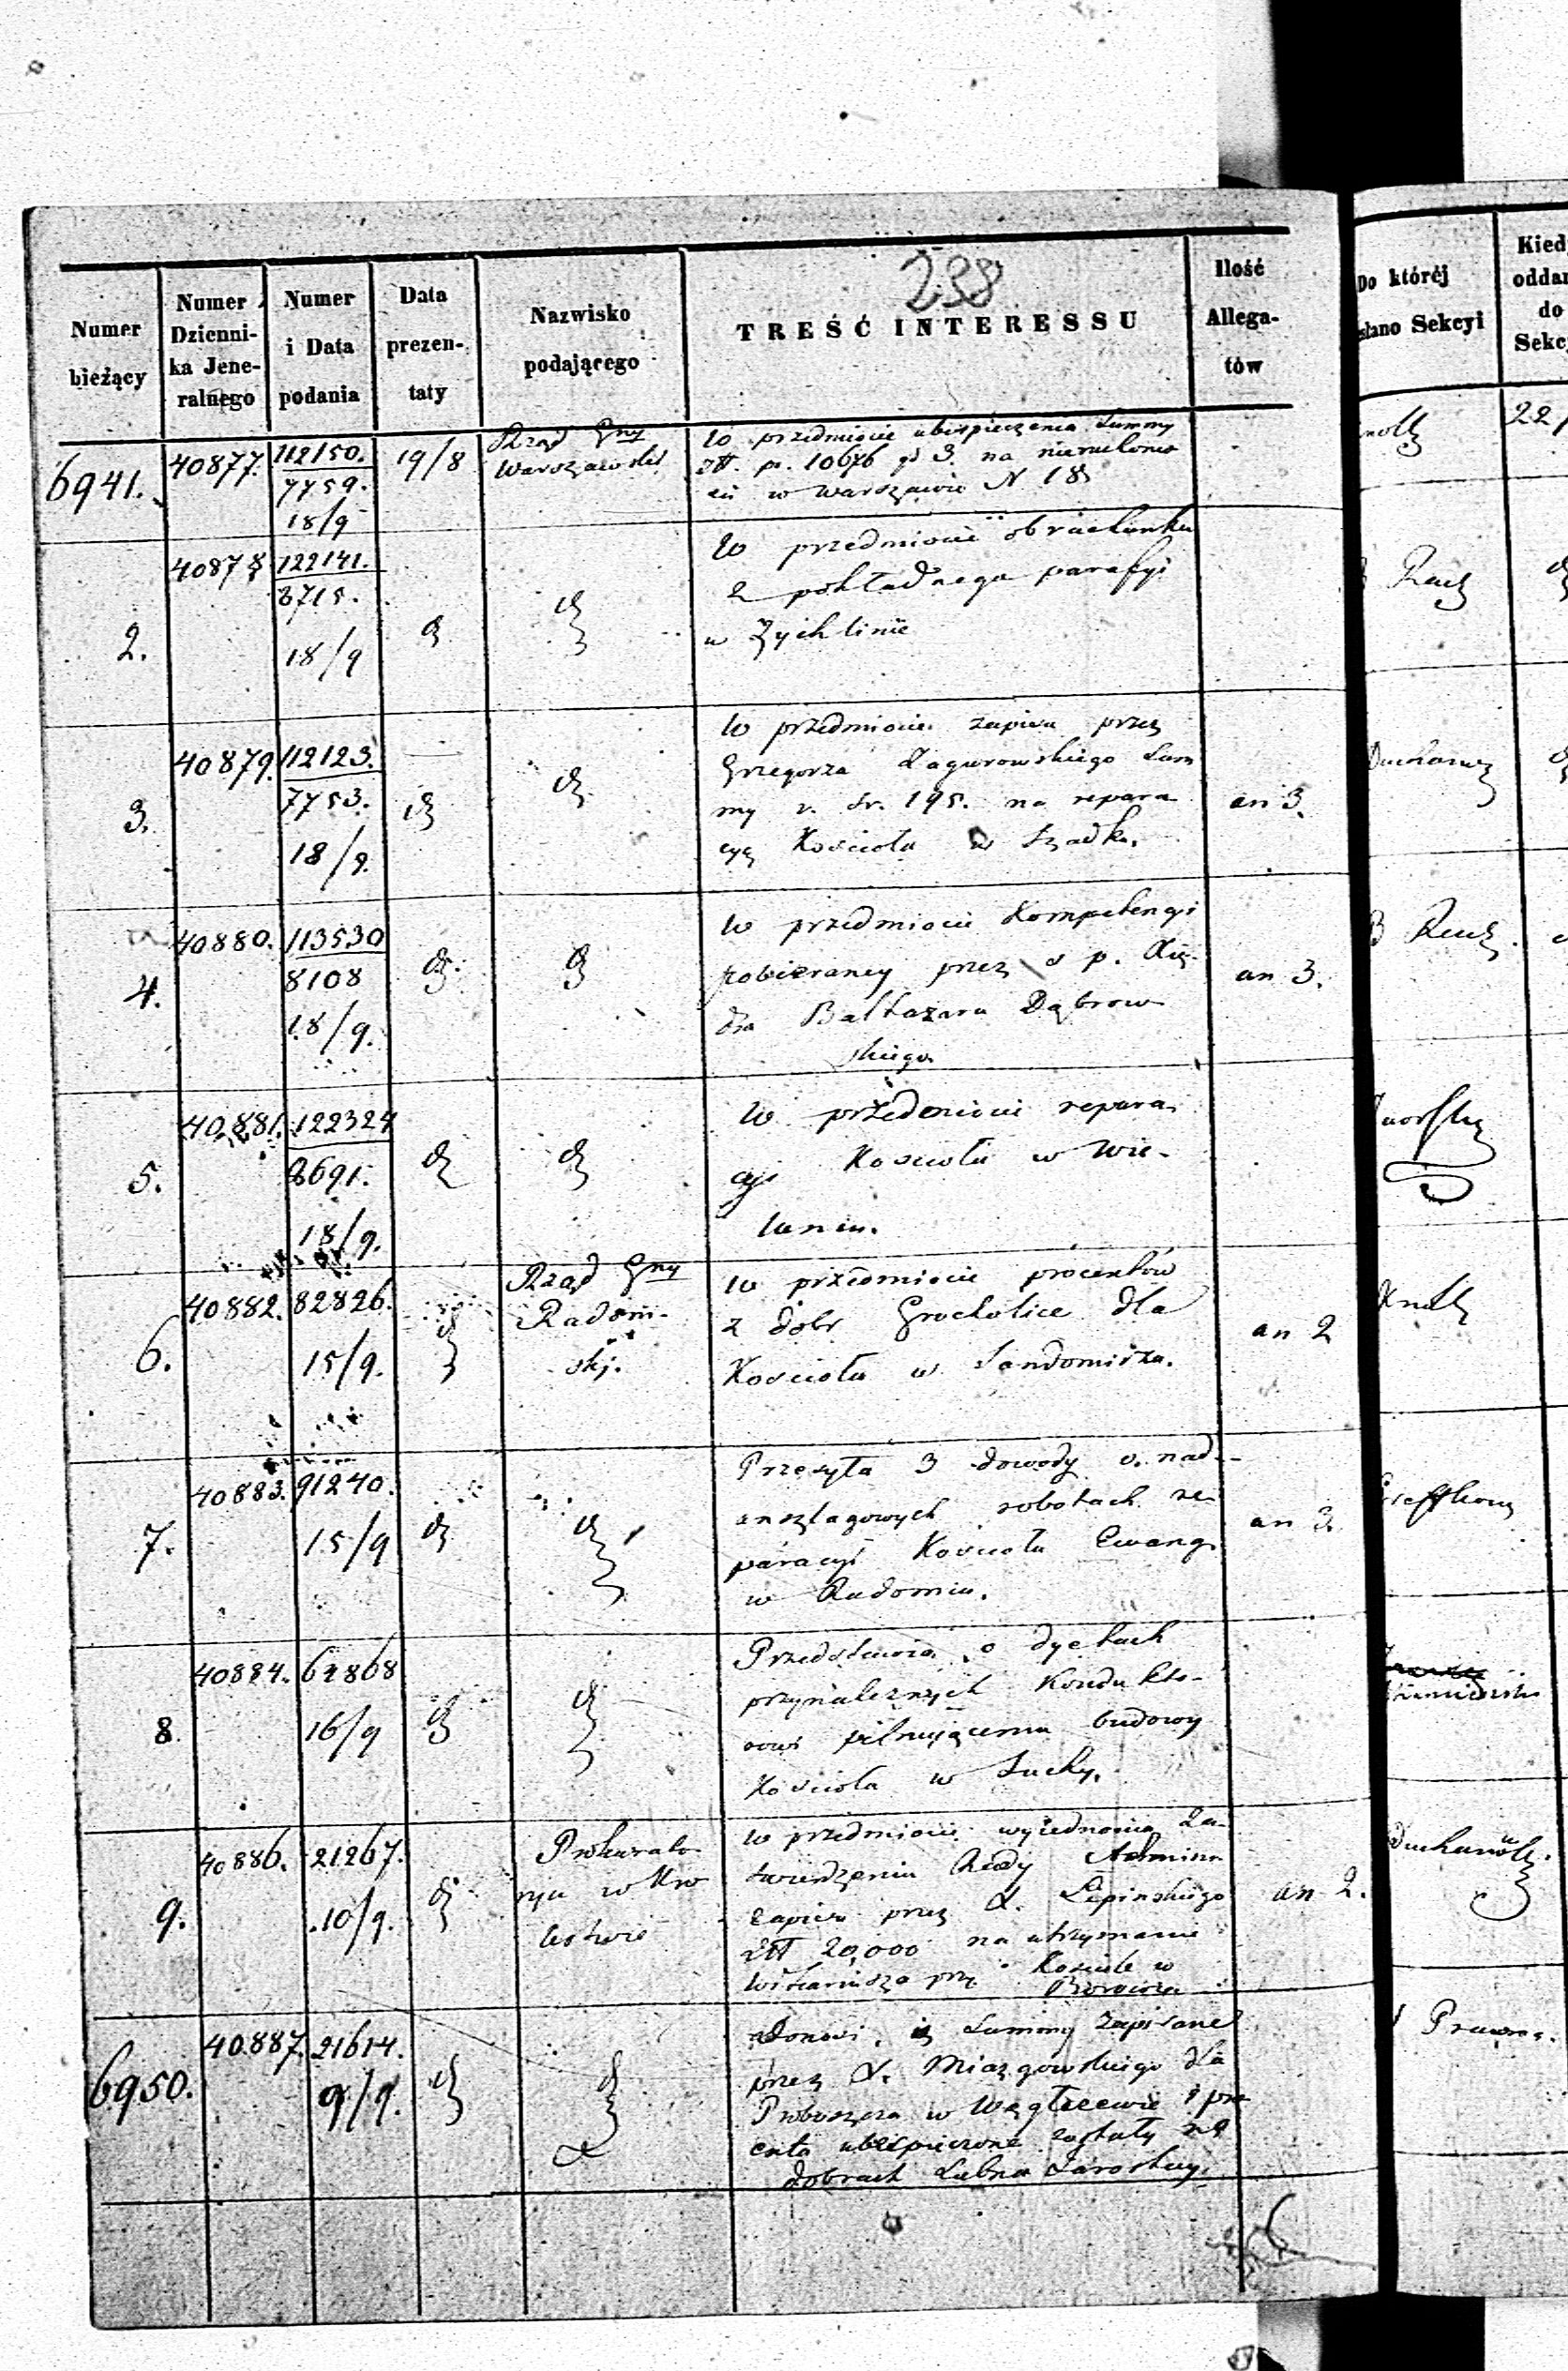 238
Numer bieżący
Numer Dzienni-ka Jene-ralnego
Numer i Data podania
Data prezen-taty
Nazwisko podającego
TREŚĆ INTERESSU
Ilość Allega-tów
Do której
słano Sekcyi
Kied
oddan
do
Sekc
6941.
40877.
112150.
7759.
18/9
19/8
Rząd Gny
Warszawski
W przedmiocie ubespieczenia Summy
złt. p. 10676 gr 3. na nieruchomo
ści w Warszawie N 18
22
2.
40878
122141.
8715.
18/9
W przedmiocie obrachunku
z pokładnego parafyi
w Żychlinie
3.
40879.
112123.
7753.
18/9.
W przedmiocie zapisu przez
Grzegorza Zagurowskiego Sum
my r. sr. 195. na repara
cyę Kościoła w Szadku.
an 3.
4.
40880.
113530
8108
18/9.
W przedmiocie Kompetencyi
pobieraney przez s p. Xię-
dza Baltazara Dąbrow
skiego
an 3.
5.
40881.
122324
8691.
18/9.
W przedmiocie repara
cyi Kościoła w Wie-
luniu.
6.
40882.
82826.
15/9.
Rząd Gny
Radom-
ski.
W przedmiocie procentów
z dobr Grocholice dla
Kościoła w Sandomirzu.
an 2
7.
40883.
91240.
15/9
Przesyła 3 dowody o nad-
anszlagowych robotach re
paracyi Kościoła Ewang.
w Radomiu.
an 3.
8.
40884.
64868
16/9
Przedstawia o dyetach
przynależnych Kondukto-
rowi pilnującemu budowy
Kościoła w Suchy.
9.
40886.
21267.
10/9.
Prokurato
rya w Kró
lestwie
W przedmiocie wyjednania Za-
twierdzenia Rady Admin
zapisu przez X. Lipinskiego
złt 20,000 na utrzymanie
Wikariusza przy Kościele w
an 2.
6950.
40887.
21614.
9/9.
Donosi, iż Summy zapisane
przez X. Miazgowskiego dla
Proboszcza w Wągłczewie i pro
centa ubespieczone zostały na
dobrach Lubna Jaroskay.